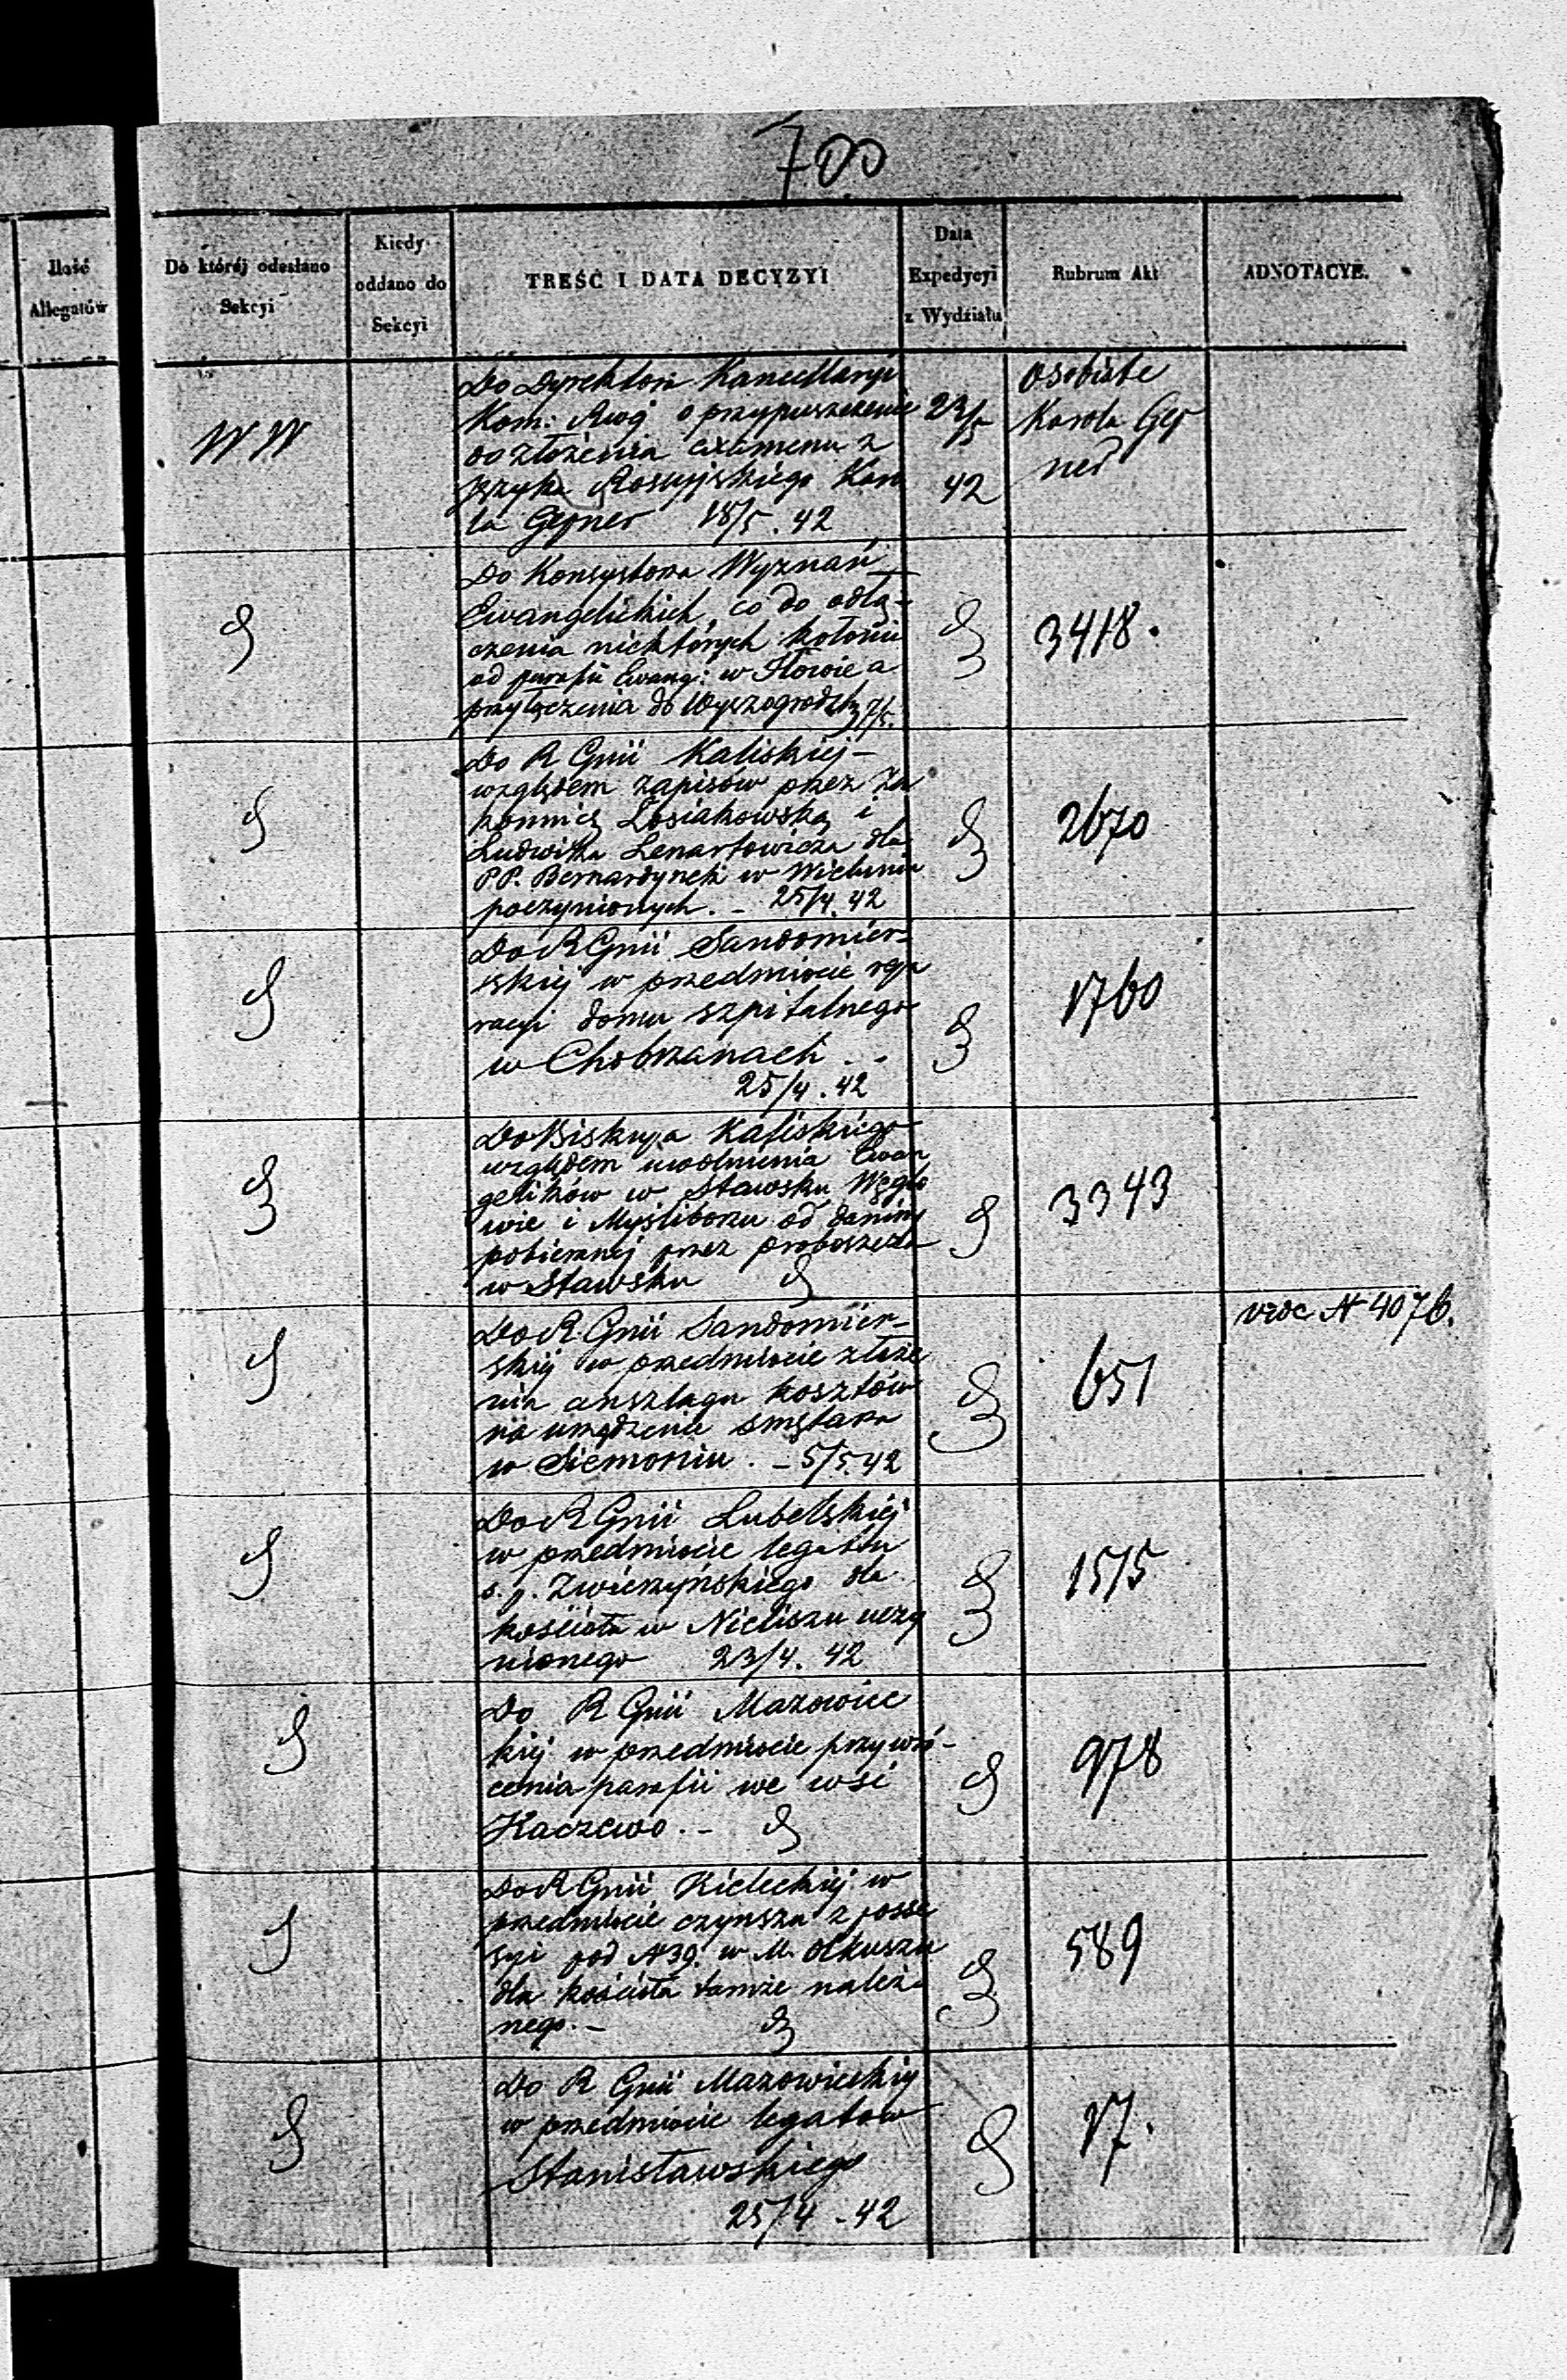 700
Ilość
Allegatów
Do któréj odesłano
Sekcyi
Kiedy
oddano do
Sekcyi
TREŚĆ I DATA DECYZYI
Data
Expedycyi
z Wydziału
Rubrum Akt
ADNOTACYE.
WW
Do Dyrektora Kancellaryi
Kom: Rwój o przypuszczenie
do złożenia examenu z
języka Rossyjskiego Karo
la Gejner 18/5. 42
23/5
42
Osobiste
Karola Gej
ner
Do Konsystorza Wyznań
Ewangelickich, co do odłą-
czenia niektórych kolonii
od parafii Ewang: w Iłowie a
przyłączenia do Wyszogrodzk. 7/5.
3418.
Do R Gnii Kaliskiej-
względem zapisów przez Za
konnicę Łosiakowską i
Ludwika Lenartowicza dla
PP. Bernardynek w Wieluniu
poczynionych. - 25/4. 42
2670
Do R Gnii Sandomier-
skiej w przedmiocie repa
racyi domu szpitalnego
w Chobrzanach . -
25/4. 42
1760
Do Biskupa Kaliskiego
względem uwolnienia Ewan
gelików w Sławsku Węglo
wie i Myśliborzu od daniny
pobieranej przez proboszcza
w Sławsku
3343
Do R. Gnii Sandomier-
skiej w przedmiocie złoże
nia anszlagu kosztów
na urządzenie smętarza
w Siemoniu. - 5/5. 42
651
vide N 4076.
Do R Gnii Lubelskiej
w przedmiocie legatu
s. p. Zwierzyńskiego dla
kościoła w Nieliszu uczy
nionego 23/4. 42
1515
Do R Gnii Mazowiec
kiej w przedmiocie przywró-
cenia parafii we wsi
Kaczewo. -
978
Do R Gnii Kieleckiej w
przedmiocie czynszu z posse
syi pod N 39. w M. Olkuszu
dla kościoła tamże należ
nego. -
589
Do R Gnii Mazowieckiej
w przedmiocie legatow
Stanisławskiego
25/4 - 42
17.